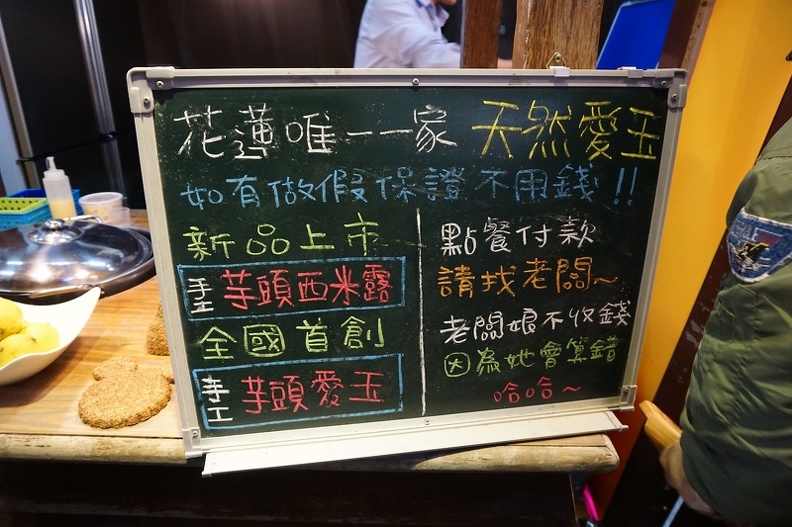 花蓮唯一一家 天然愛玉
如有做假保證不用錢!!
新品上市
手工 芋頭西米露
全國首創
手工 芋頭愛玉
點餐付款
請找老闆~
老闆娘不收錢
因為她會算錯
哈哈~